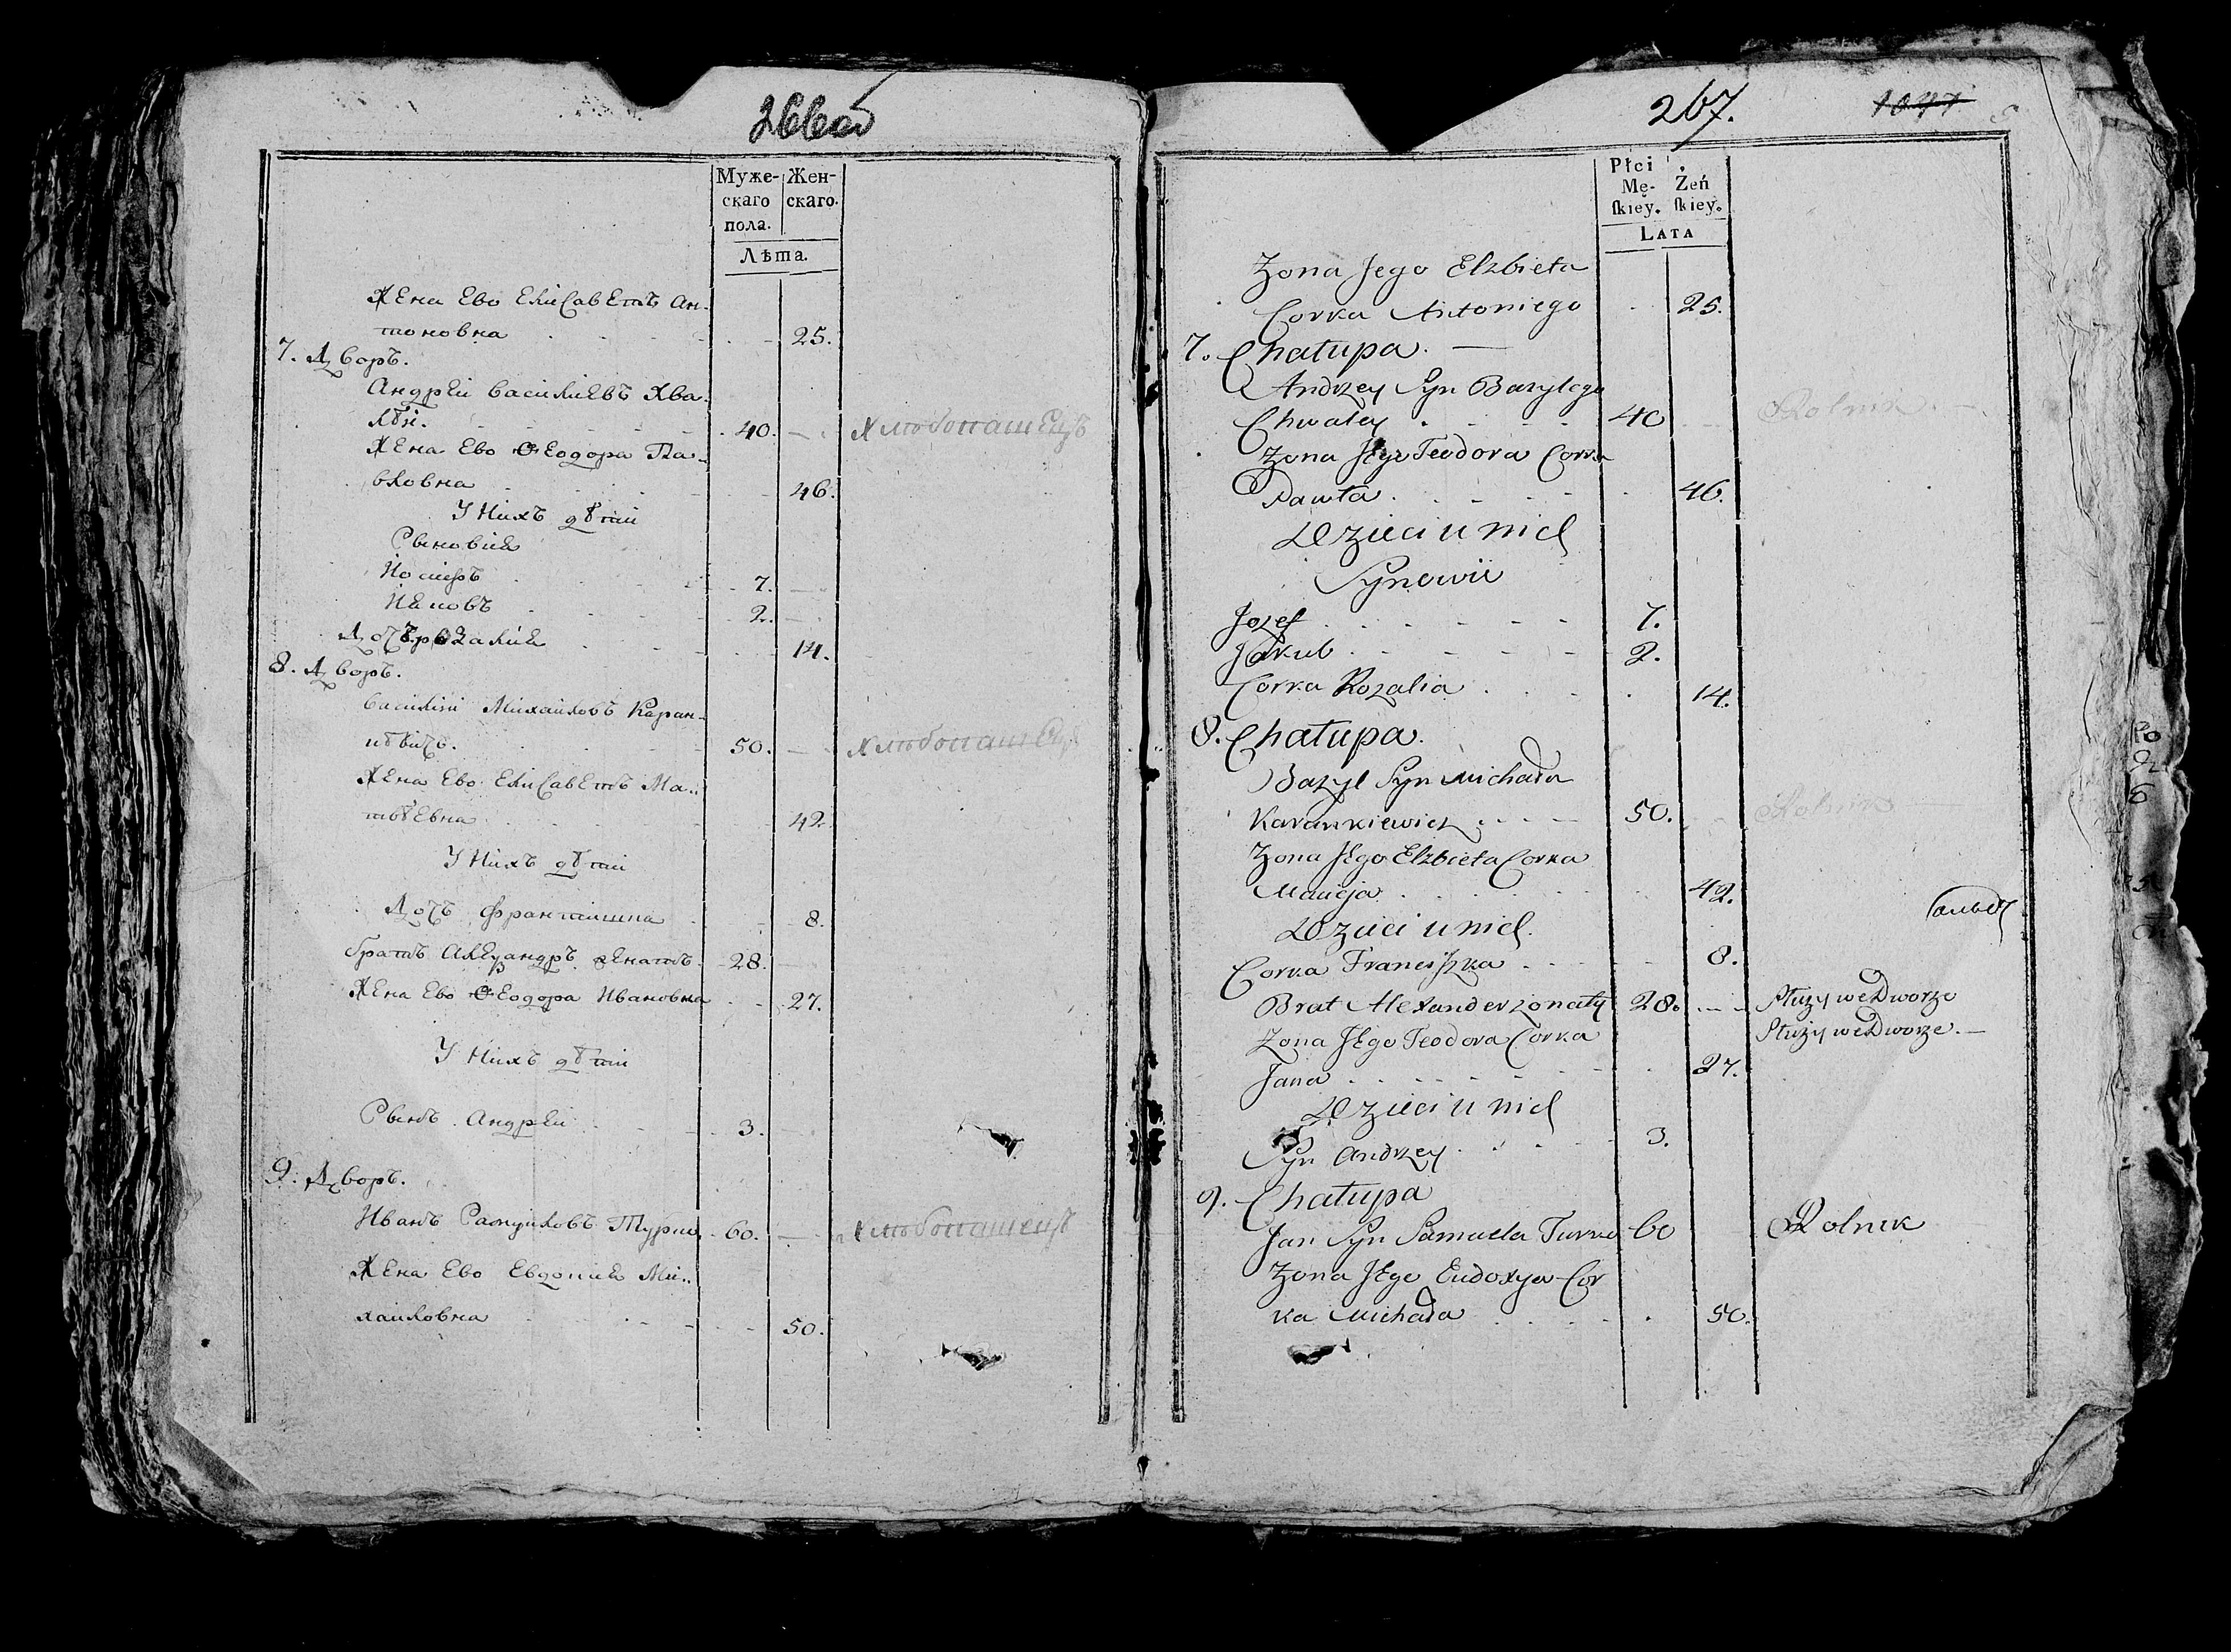 266 об
Муже-
скаго
пола.
Жен-
скаго.
Лѣта.
Жена Ево Елисаветъ Ан-
тоновна 25.
7. Дворъ.
Андрей Василіевъ Хва-
лѣй. 40. Хлѣбопашецъ
Жена Ево Ѳеодора Па-
вловна 46.
У Нихъ дѣти
Сыновія
Иосифъ 7.
Яковъ 2.
Дочъ Розалия 14.
8. Дворъ.
Василій Михайловъ Каран-
кѣвичъ. 50. Хлѣбопашецъ
Жена Ево Елисаветъ Ма-
твѣевна 42.
У Нихъ дѣти
Дочъ Францишка 8.
братъ Александръ женатъ 28.
Жена Ево Ѳеодора Ивановна 27.
У Нихъ дѣти
Сынъ Андрей 3.
9. Дворъ.
Иванъ Самуиловъ Турко 60. Хлѣбопашецъ
Жена Ево Евдокия Ми-
хайловна 50.
267. 1047
Płci
Mę-
skiey.
Żeń
skiey.
LATA
Zona Jego Elzbieta
Corka Antoniego 25.
7. Chałupa.
Andrzey Syn Bazylego
Chwaley 40 Rolnik
Zona Jego Teodora Corka
Pawła. 46.
Dzieci u nich
Synowie
Jozef 7.
Jakub 2.
Corka Rozalia 14.
8. Chałupa.
Bazyl Syn Michała
Karankiewicz 50. Rolnik
Zona Jego Elzbieta Corka
Macieja 42.
Dzieci u nich.
Corka Franciszka 8.
Brat Alexander zonaty 28. Służy we Dworze
Zona Jego Teodora Corka Służy we Dworze.
Jana 27.
Dzieci u nich
Syn Andrzey 3.
9. Chałupa
Jan Syn Samuela Turko 60 Rolnik
Zona Jego Eudoxya Cor
ka Michała 50.